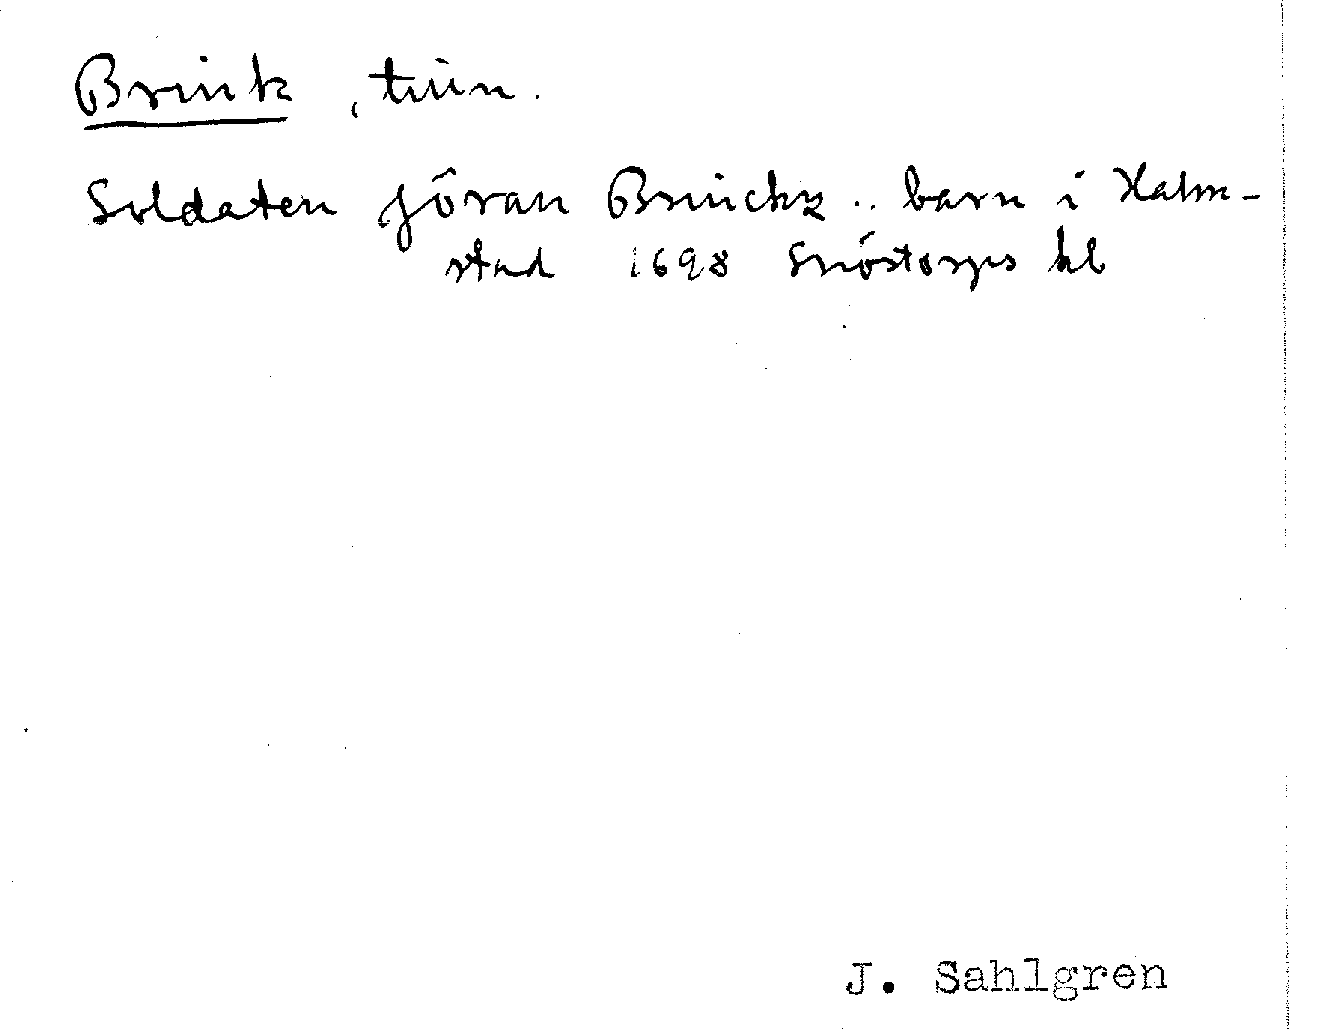 Brink, tilln.
Soldaten Jöran Brinckz .. barn i Halm-
stad 1698 Snöstorps kb
J. Sahlgren